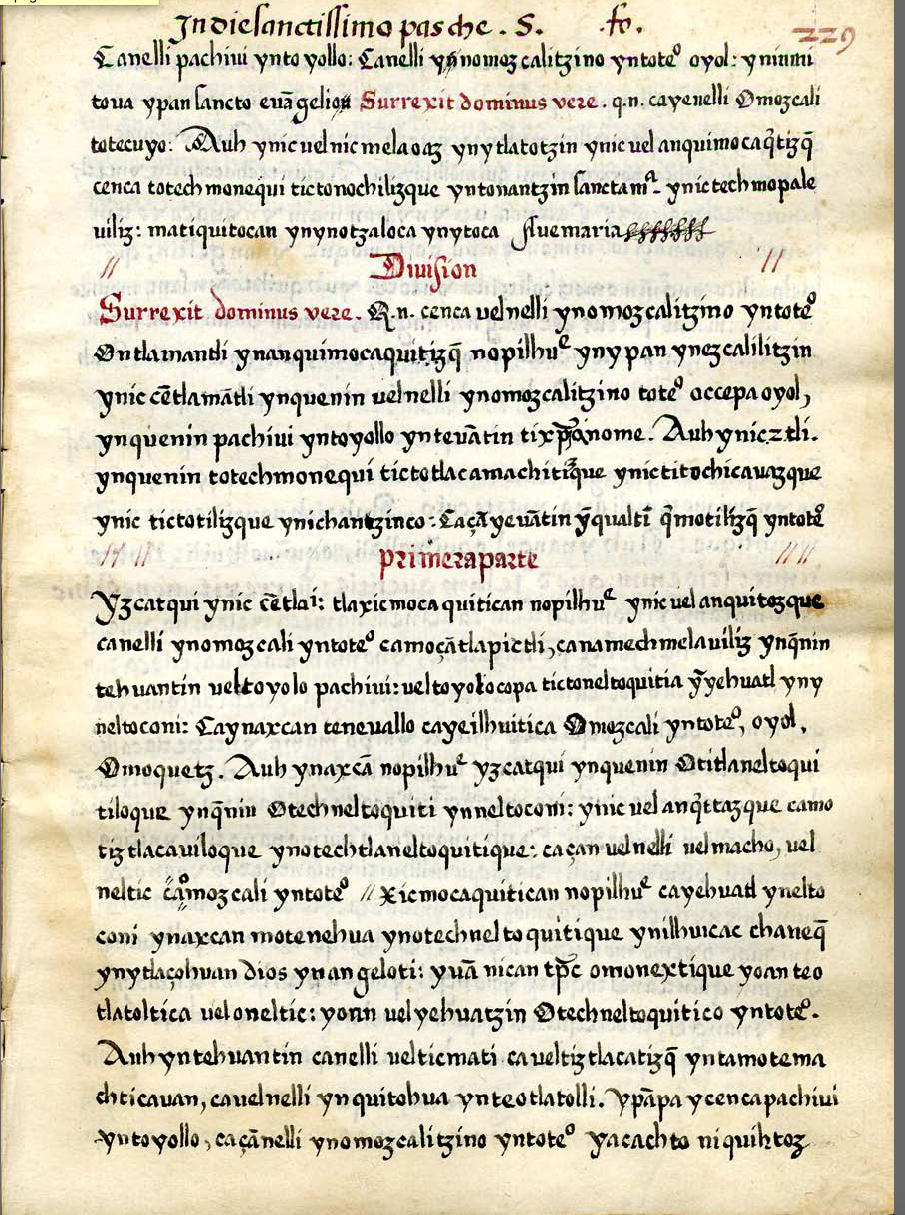 In die sanctissimo pasche . S. .fo. 229
Canelli pachiui ynto yollo: Canelli ynomozcalitzino yntoteº oyol: yniuiui
toua ypan sancto euāgelio Surrexit dominus vere . q.n. cayenelli Omozcali
totecuyo: Auh ynic uel nic melaoaz ynytlatotzin ynic uel anquimocaq̄tizq̄
cenca totech monequi tictonochilizque yntonantzin sancta mª. ynic techmopale
uiliz: matiquitocan ynynotzaloca ynytoca Auemaria
// Diuision //
Surrexit dominus vere. Q.n. cenca uelnelli ynomozcalitzino yntoteº
Ontlamantli ynanquimocaquitizq̄ nopilhuē ynypan ynezcalilitzin
ynic cētlamātli ynquenin uelnelli ynomozcalitzino toteº occepa oyol,
ynquenin pachiui yntoyollo ynteuātin tixp̄ianome. Auh ynic.z.tli.
ynquenin totechmonequi tictotlacamachitizque ynictitochicauazque
ynic tictotilizque ynichantzinco: Caçā yeuātin ȳqualtī q̄motilizq̄ yntoteº
// // primera parte // //
Yzcatqui ynic cētlaī: tlaxicmocaquitican nopilhuē ynic uel anquitozque
canelli ynomozcali yntoteº camoçātlapictli, canamechmelauiliz ynq̄nin
tehuantin ueltoyolo pachiui: ueltoyolocopa tictoneltoquitia ȳyehuatl yny
neltoconi: Caynaxcan teneuallo cayeilhuitica Omozcali yntoteº, oyol,
Omoquetz. Auh ynaxcā nopilhuē yzcatqui ynquenin Otitlaneltoqui
tiloque ynq̄nin Otechneltoquiti ynneltoconi: ynic uel anq̄ttazque camo
tiztlacauiloque ynotechtlaneltoquitique: caçan uelnelli uelmacho, uel
neltic cāomozcali yntoteº // xicmocaquitican nopilhuē cayehuatl ynelto
coni ynaxcan motenehua ynotechneltoquitique ynilhuicac chaneq̄
ynytlaçohuan dios ynangeloti: yuā nican tp̄c omonextique yoan teo
tlatoltica ueloneltic: yoan uel yehuatzin Otechneltoquitico yntoteº.
Auh yntehuantin canelli uelticmati caueltiztlacatizq̄ yntamotema
chticauan, cauelnelli ynquitohua ynteotlatolli. Ypāpa ycencapachiui
yntoyollo, caçānelli ynomozcalitzino yntoteº yacachto niquihtoz